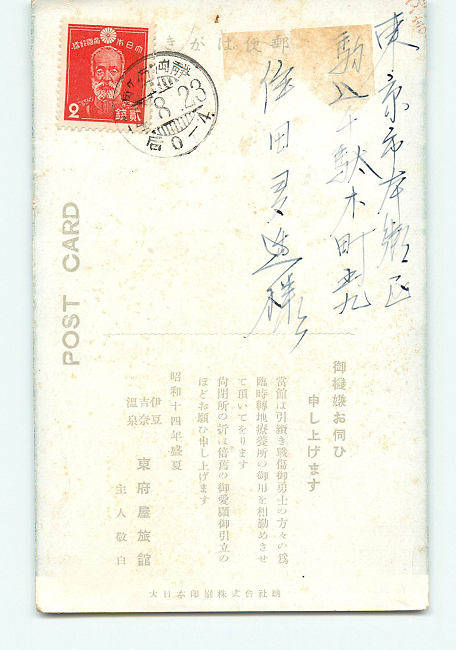 郵便はかき
大日本帝国郵便
2
弐銭
8
23
POST CARD
東京市本郷区
駒込千駄木町五九
住田
様
御機嫌お伺ひ
申し上げます
當館は引續き戰傷御勇士の方々の爲
臨時轉地療養所の御用を相勤めさせ
て頂いてをります
尙閉所の折は倍舊の御愛顧御引立の
ほどお願ひ申し上げます
昭和十四年盛夏
伊豆
吉奈
溫泉
東府屋旅館
主人敬白
大日本印刷株式会社納